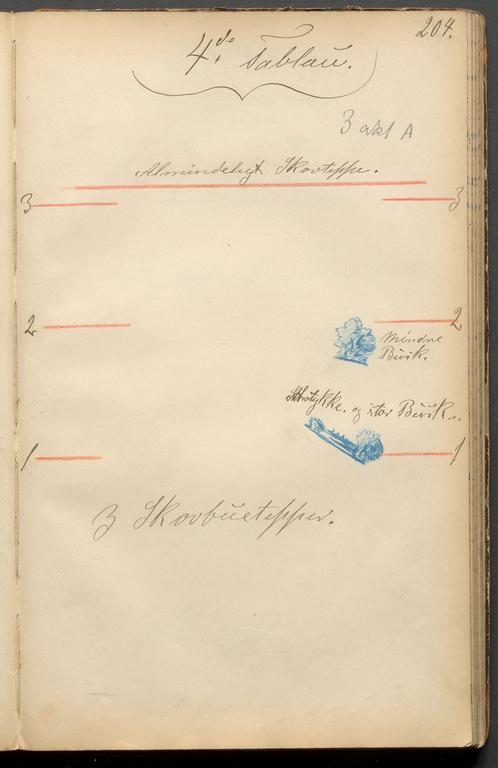 204.
4de Tablau.
3 akt A
Almindeligt Skovteppe.
3 3
2 2
Mindre
Büsk.
Søstykke. og stor Büsk.
1 1
3 Skovbuetepper.